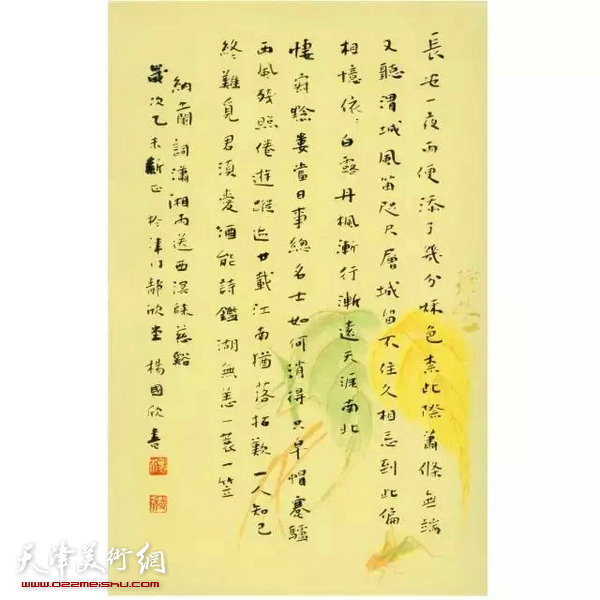 長安一夜雨便添了幾分秌色柰此際蕭條無端
又聽渭城風笛咫尺層城留不住久相忘到此偏
相憶依〻白露丹楓漸行漸遠天涯南北
悽寂黔婁當日事總名士如何消得只皁帽蹇驢
西風殘照倦遊蹤迹廿載江南猶落拓歎一人知己
終難覓君須愛酒能詩鑑湖無恙一蓑一笠
納蘭詞瀟湘雨送西溟歸慈谿
歲次乙未新正於津門靜欣堂楊國欣書
天津美術網
www.022meishu.com